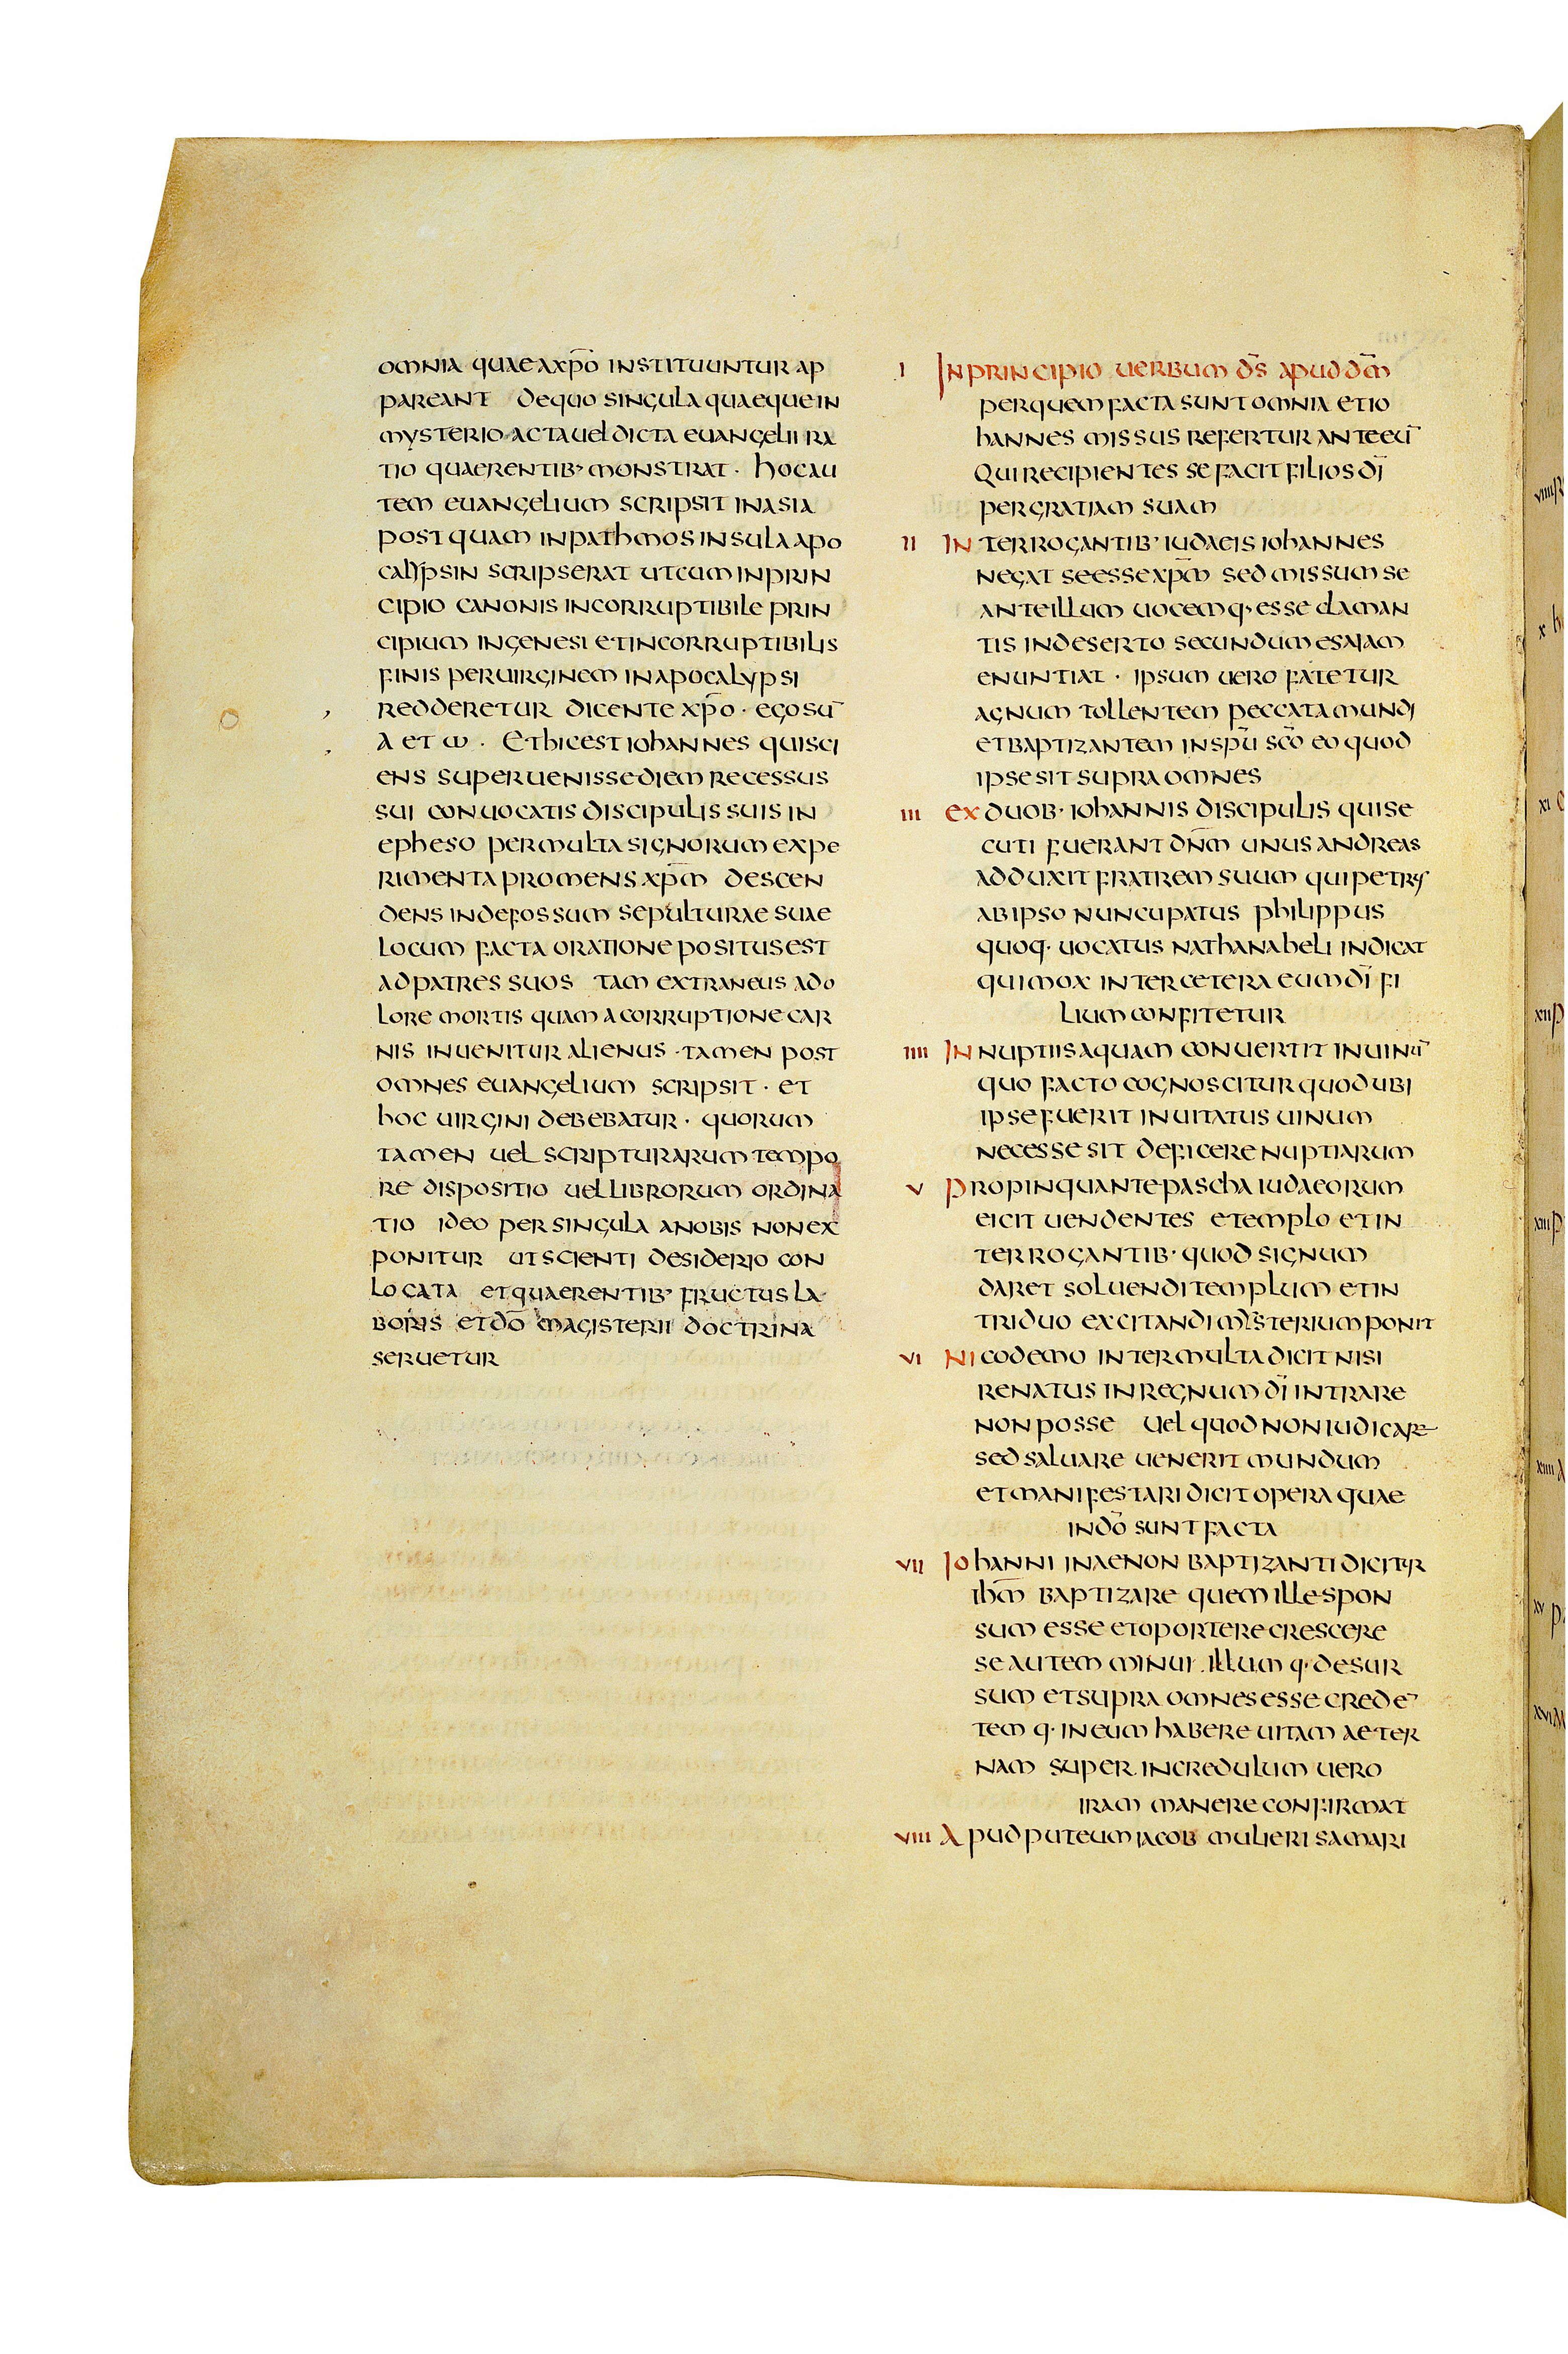 omnia quae a xp̄o instituuntur ap
pareant de quo singula quaeque in
mysterio acta uel dicta euangelii ra
tio quaerentib· monstrat · hoc au
tem euangelium scripsit in asia
post quam in pathmos insula apo
calypsin scripserat ut cum in prin
cipio canonis incorruptibile prin
cipium in genesi et incorruptibilis
finis per uirginem in apocalypsi
redderetur dicente xp̄o · ego sū
α et ω · Et hic est iohannes qui sci
ens superuenisse diem recessus
sui conuocatis discipulis suis in
epheso per multa signorum expe
rimenta promens xp̄m descen
dens in defossum sepulturae suae
locum facta oratione positus est
ad patres suos tam extraneus a do
lore mortis quam a corruptione car
nis inuenitur alienus · tamen post
omnes euangelium scripsit · et
hoc uirgini debebatur · quorum
tamen uel scripturarum tempo
re dispositio uel librorum ordina
tio ideo per singula a nobis non ex
ponitur ut scienti desiderio con
locata et quaerentib· fructus la
boris et dō magisterii doctrina
seruetur
I In principio uerbum d̄s apud d̄m
per quem facta sunt omnia et io
hannes missus refertur ante eū
Qui recipientes se facit filios dī
per gratiam suam
II Interrogantib· iudaeis iohannes
negat se esse xp̄m sed missum se
ante illum uocem q· esse claman
tis in deserto secundum esaiam
enuntiat · ipsum uero fatetur
agnum tollentem peccata mundi
et baptizantem in spū scō eo quod
ipse sit supra omnes
III Ex duob· iohannis discipulis qui se
cuti fuerant dn̄m unus andreas
adduxit fratrem suum qui petrus
ab ipso nuncupatus philippus
quoq· uocatus nathanaheli indicat
qui mox inter cetera eum dī fi
lium confitetur
IIII In nuptiis aquam conuertit in uinū
quo facto cognoscitur quod ubi
ipse fuerit inuitatus uinum
necesse sit deficere nuptiarum
V Propinquante pascha iudaeorum
eicit uendentes e templo et in
terrogantib· quod signum
daret soluendi templum et in
triduo excitandi mysterium ponit
VI Nicodemo inter multa dicit nisi
renatus in regnum dī intrare
non posse uel quod non iudicare
sed saluare uenerit mundum
et manifestari dicit opera quae
in dō sunt facta
VII Iohanni in aenon baptizanti dicitur
ihm̄ baptizare quem ille spon
sum esse et oportere crescere
se autem minui illum q· desur
sum et supra omnes esse credē
tem q· in eum habere uitam aeter
nam super incredulum uero
iram manere confirmat
VIII Apud puteum iacob mulieri samari